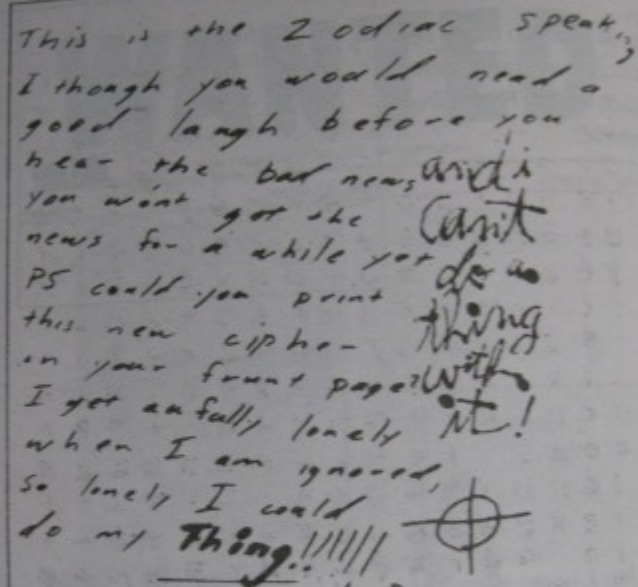 This is the Zodiac speaking
I though you would nead a
good laugh before you
hear the bad news
you won't get the
news for a while yet
PS could you print
this new cipher
on your frunt page?
I get awfully lonely
when I am ignored,
so lonely I could
do my Thing!!!!!!
and i
can't
do a
thing
with
it!